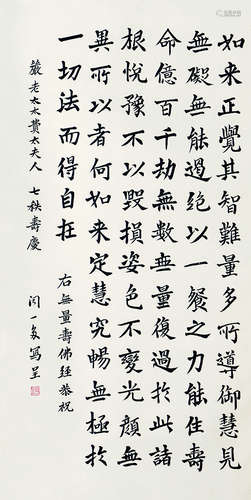 如来正覺其智難量多所導御慧見
無礙無能遏絕以一餐之力能住壽
命億百千劫無數無量復過於此諸
根悅豫不以毀損姿色不變光顏無
異所以者何如来定慧究暢無極於
一切法而得自在
右無量壽佛經恭祝
嚴老太太費太夫人 七秩壽慶
聞一多寫呈